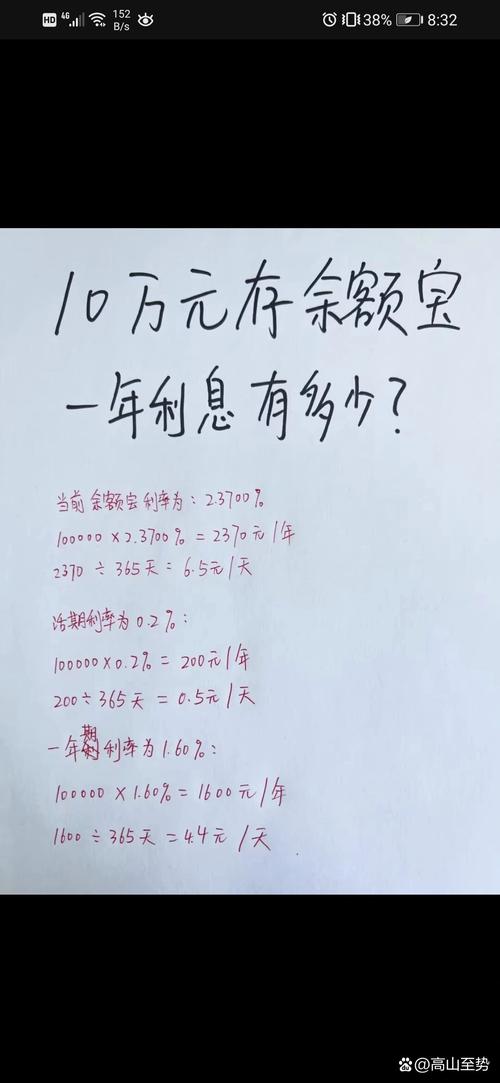 HD 4G 152 B/s 38% 8:32
10万元存余额宝
一年利息有多少?
当前余额宝利率为:2.3700%
100000×2.3700%=2370元/年
2370÷365天=6.5元/天
活期利率为0.2%:
100000×0.2%=200元/年
200÷365天=0.5元/天
一年期利率为1.60%:
100000×1.60%=1600元/年
1600÷365天=4.4元/天
@高山至势